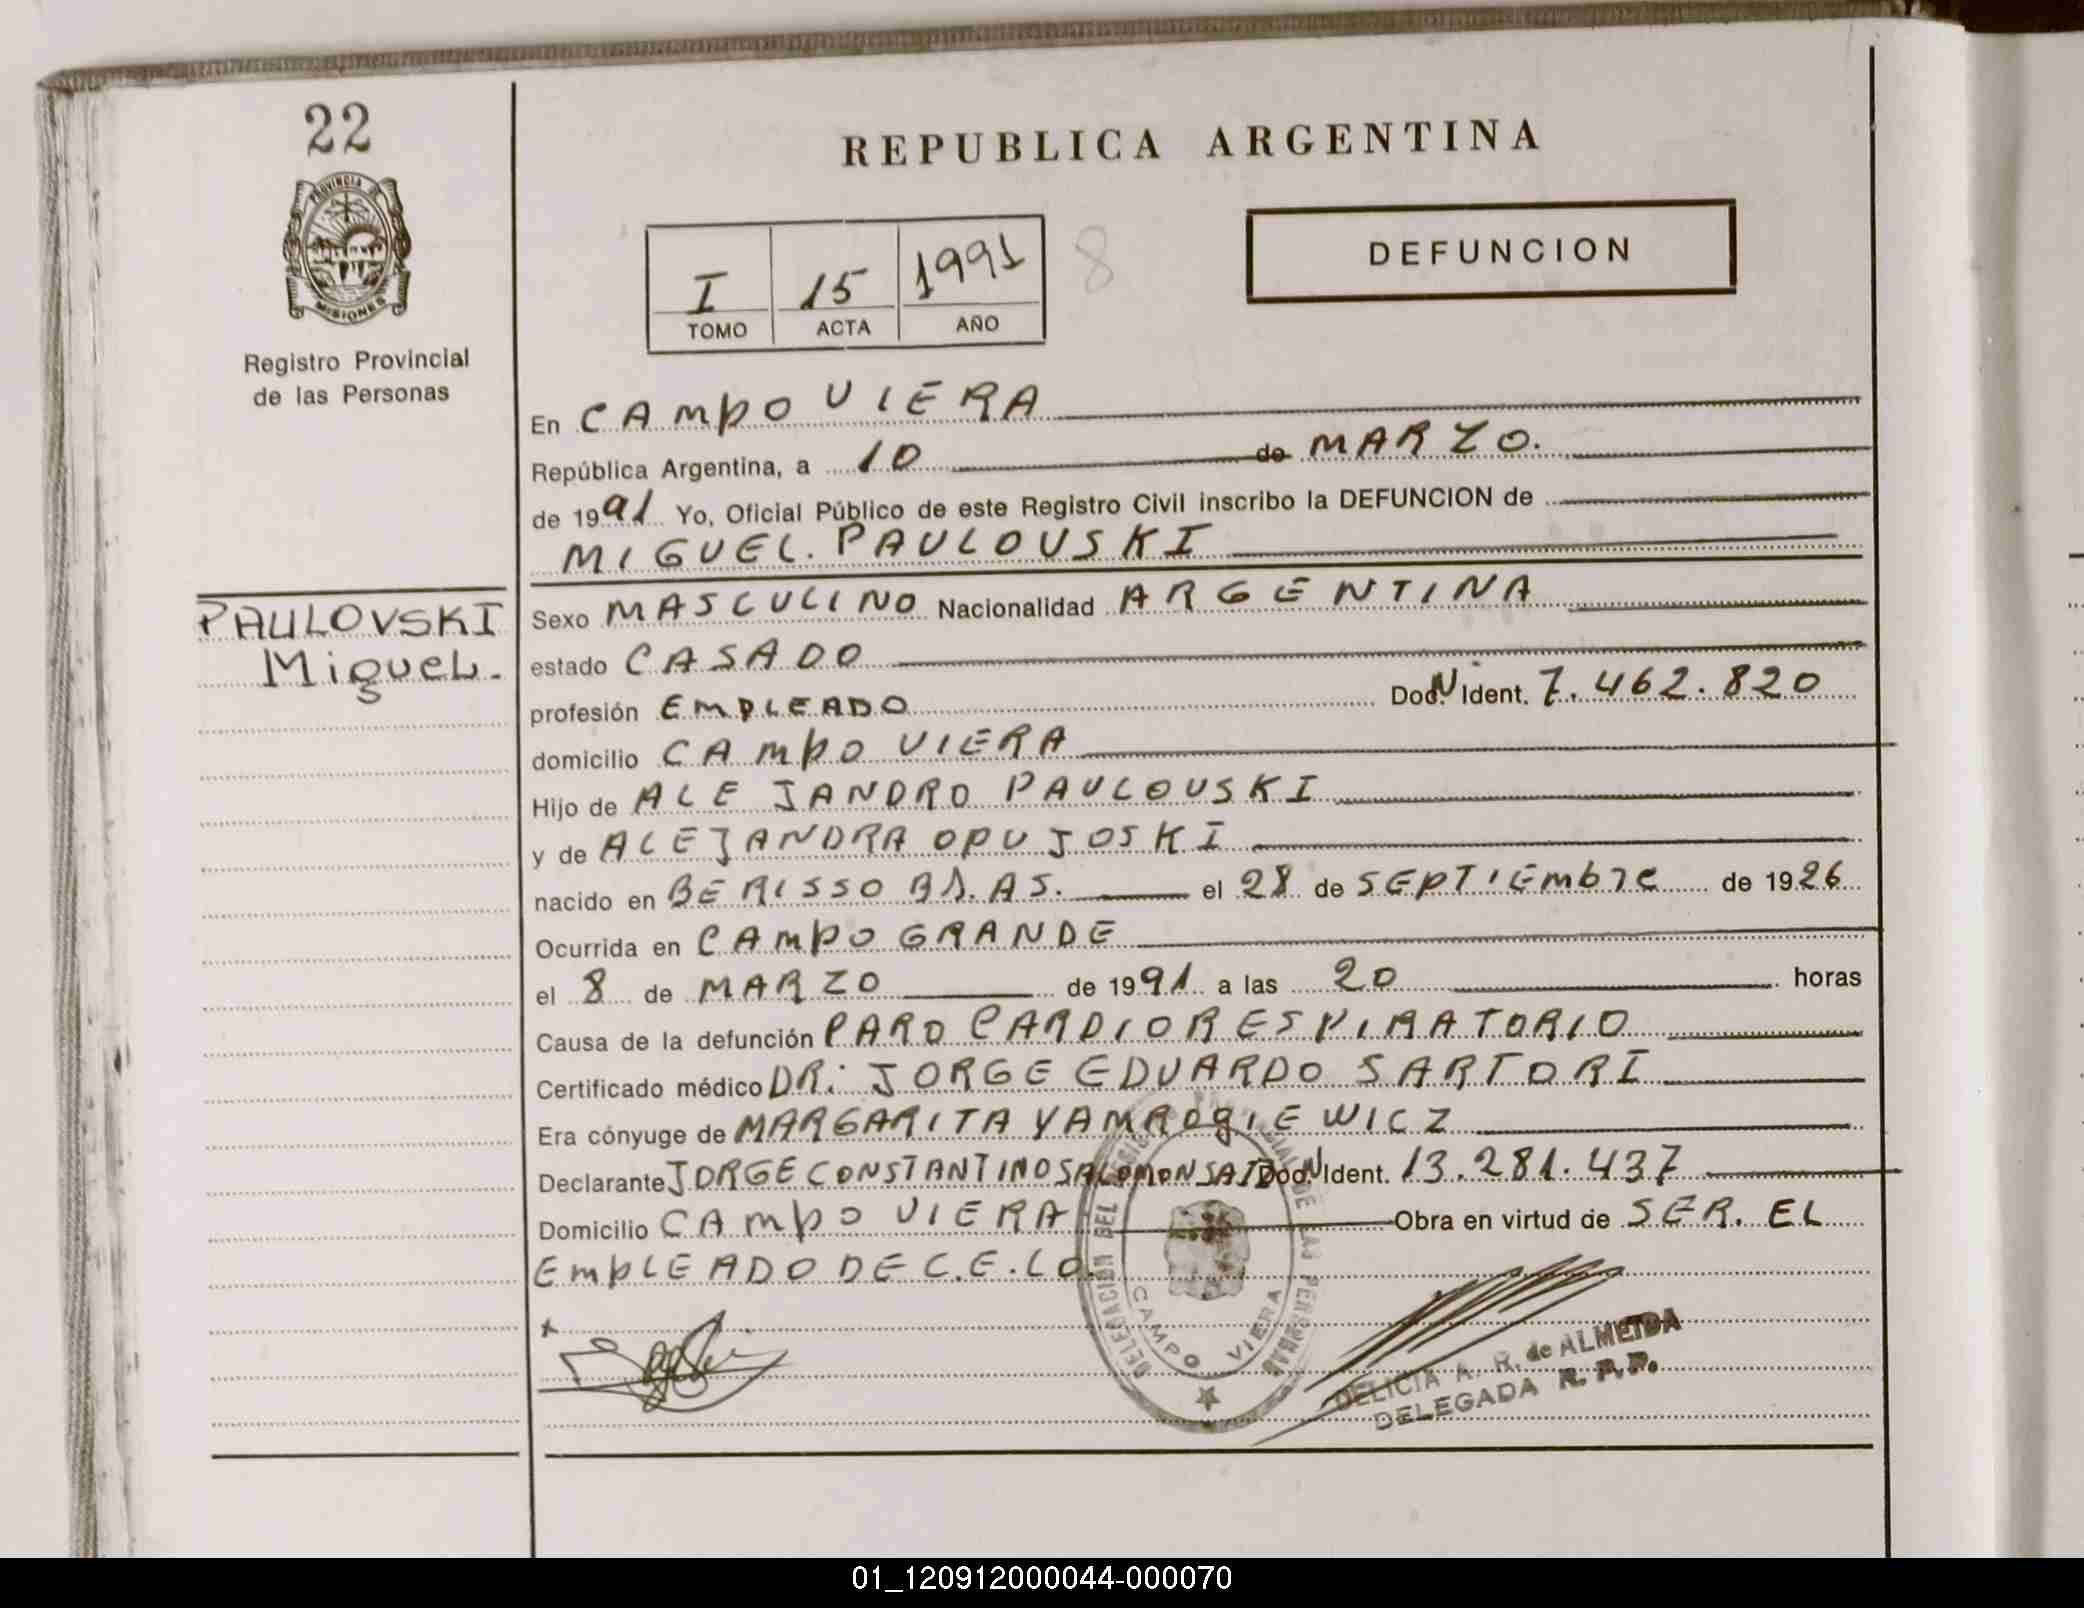 22
PROVINCIA DE
MISIONES
Registro Provincial
de las Personas
REPUBLICA ARGENTINA
I 15 1991 8
TOMO ACTA AÑO
DEFUNCION
En CAMPO VIERA
República Argentina, a 10 de MARZO.
de 1991 Yo, Oficial Público de este Registro Civil inscribo la DEFUNCION de
MIGUEL. PAULOVSKI
PAULOVSKI
Miguel.
Sexo MASCULINO Nacionalidad ARGENTINA
estado CASADO
profesión EMPLEADO Doc. N Ident. 7.462.820
domicilio CAMPO VIERA
Hijo de ALEJANDRO PAULOVSKI
y de ALEJANDRA OPUJOSKI
nacido en BERISSO BS. AS. el 28 de SEPTIEMbre de 1926
Ocurrida en CAMPO GRANDE
el 8 de MARZO de 1991 a las 20 horas
Causa de la defunción PARO CARDIORESPIRATORIO
Certificado médico DR: JORGE EDUARDO SARTORI
Era cónyuge de MARGARITA YAMROgIEWICZ
Declarante JORGE CONSTANTINO SALOMON Doc. N Ident. 13.281.437
Domicilio CAMPO VIERA Obra en virtud de SER. EL
EMPLEADO DE C.E.LO.
DELEGACION DEL DE LAS PERSONAS
CAMPO VIERA
DELICIA A. R. de ALMEIDA
DELEGADA R. P. P.
01_120912000044-000070